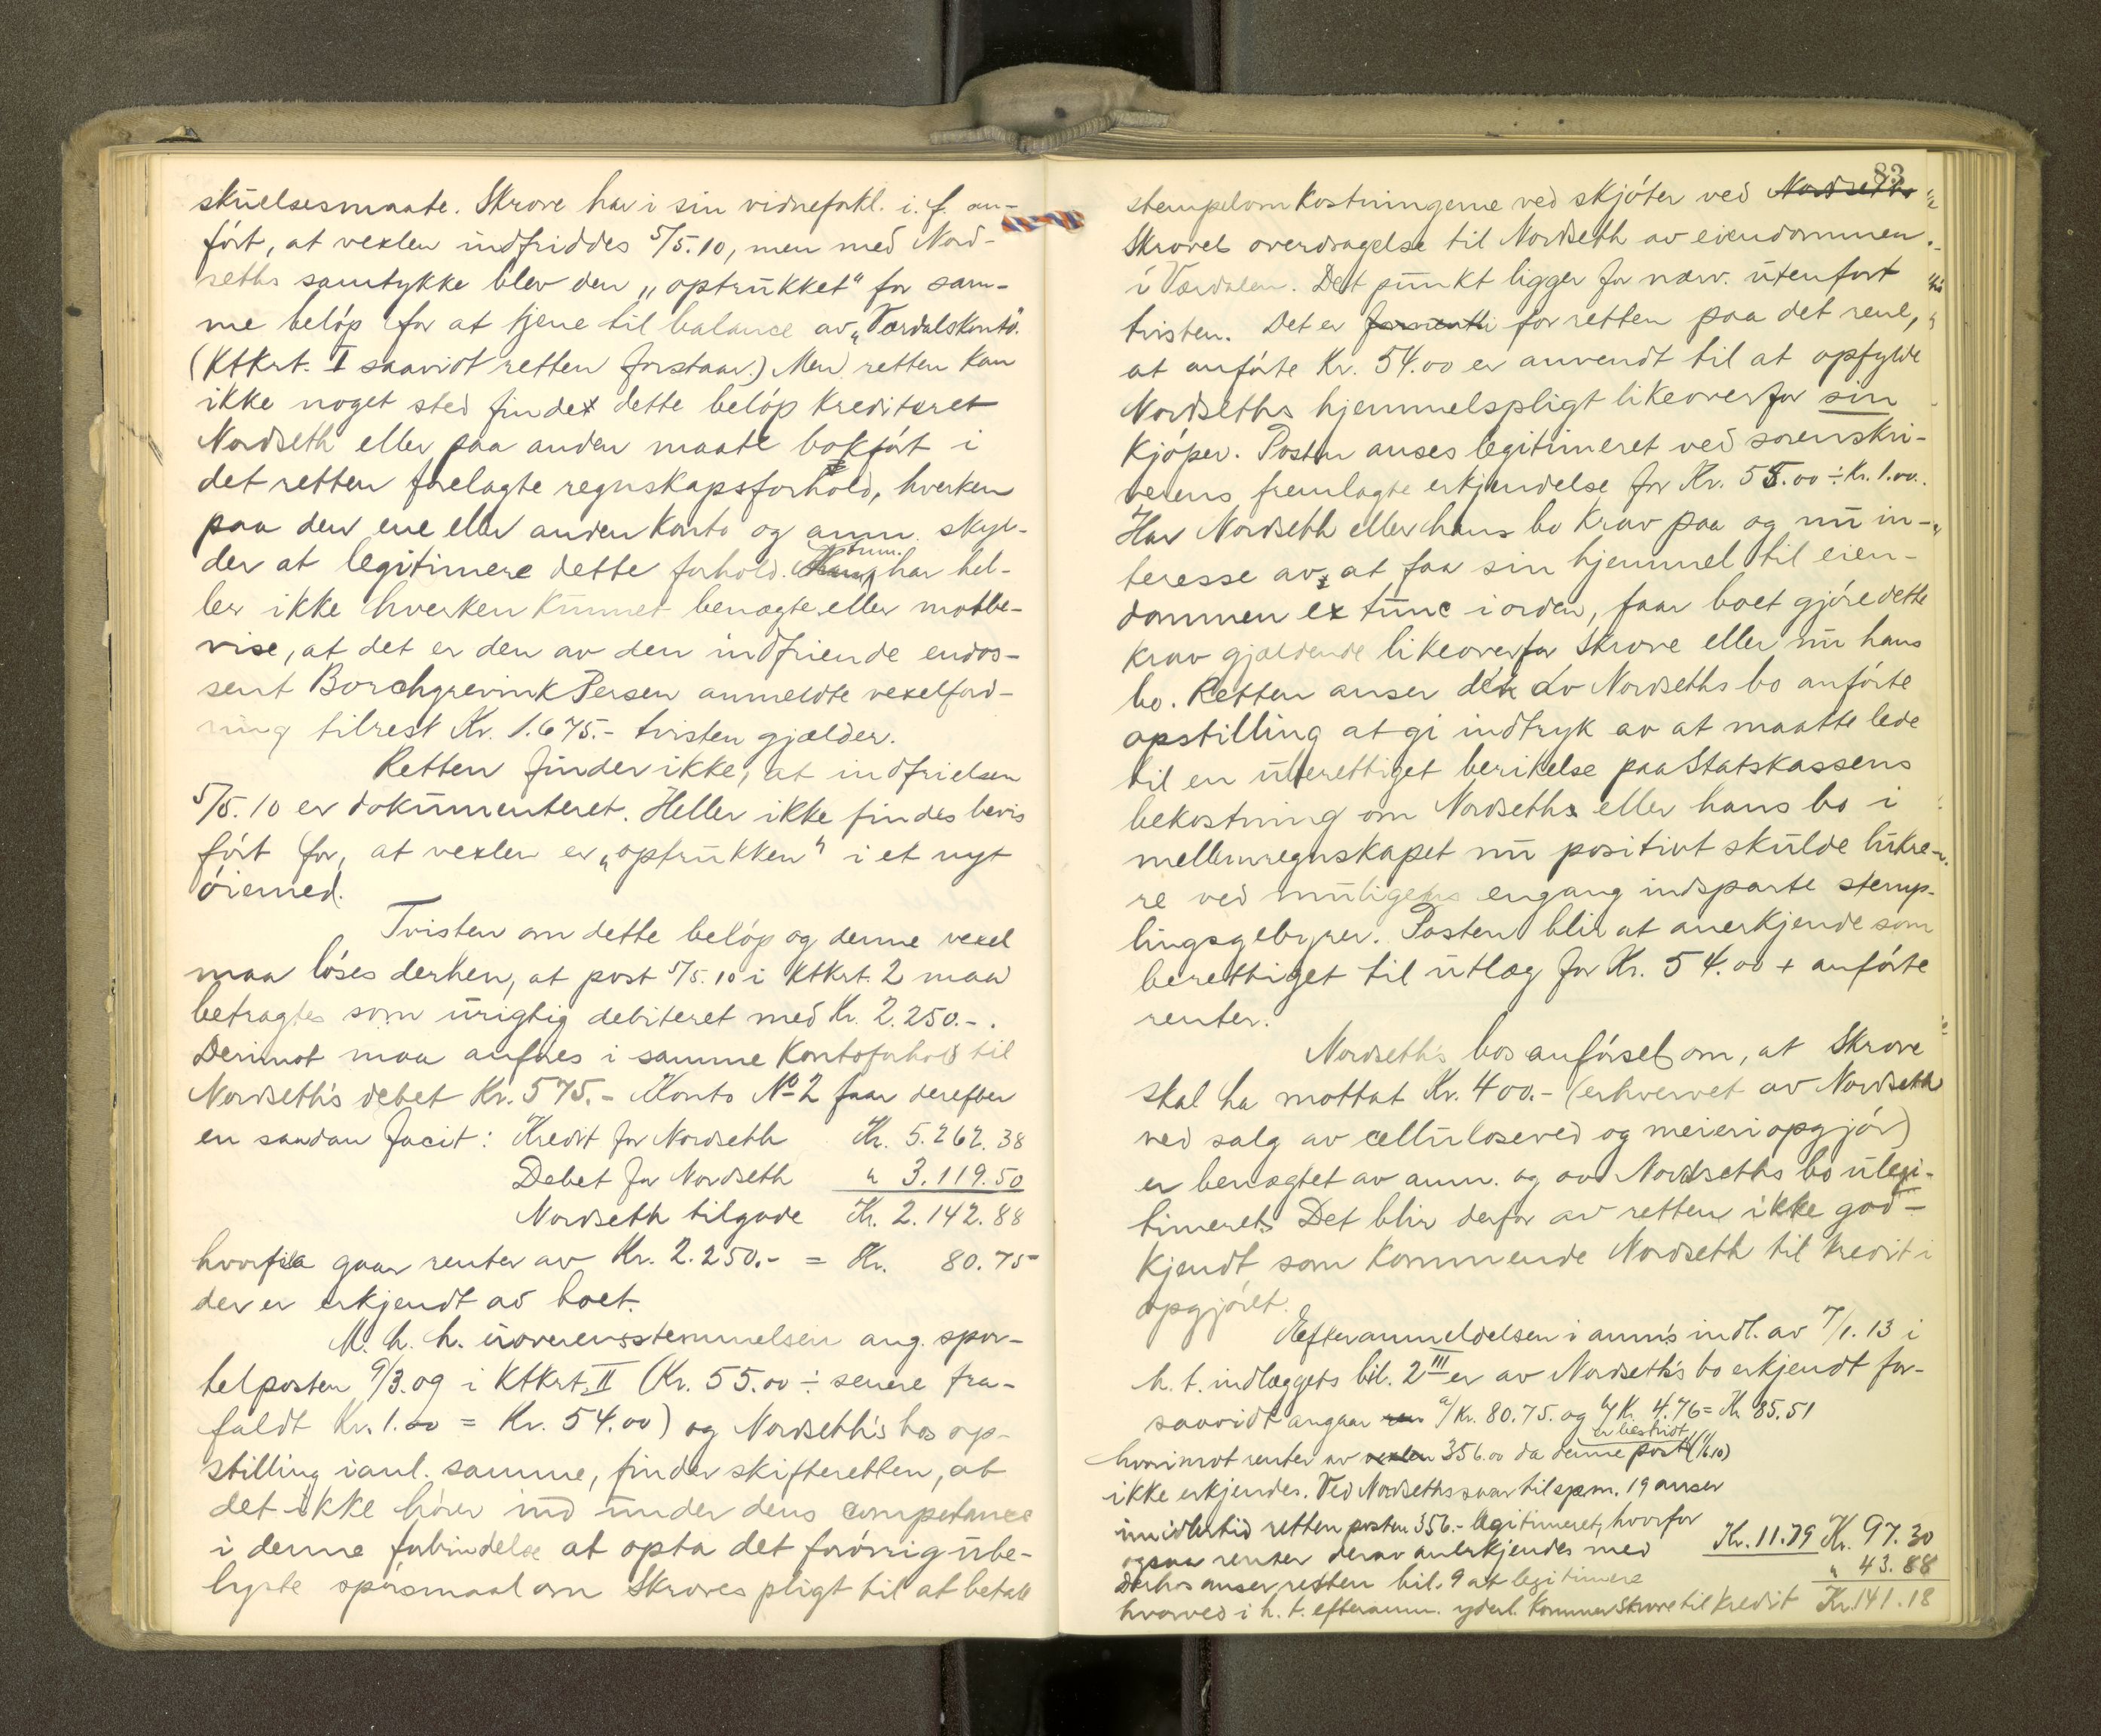 skuelsesmaate. Skrove har i sin vidneforkl. i. f. an-
ført, at vexlen indfriddes 5/5.10, men med Nord-
seths samtykke blev den „optrukket“ for sam-
me beløp for at tjene til balance av „Værdalskonto“.
(Ktkrt. I saavidt retten forstaar.) Men retten kan
ikke noget sted finde dette beløp krediteret
Nordseth eller paa anden maate bokført i
det retten forelagte regnskapsforhold, hverken
paa den ene eller anden konto og anm. skyl-
der at legitimere dette forhold. anm. har hel-
ler ikke hverken kunnet benægte eller motbe-
vise, at det er den av den indfriende endos-
sent Borchgrevink Persen anmeldte vexelford-
ring tilrest Kr. 1.675.- tvisten gjælder.
Retten finder ikke, at indfrielsen
5/5.10 er dokumenteret. Heller ikke findes bevis
ført for, at vexlen er „optrukken“ i et nyt
øiemed.
Tvisten om dette beløp og denne vexel
maa løses derhen, at post 5/5.10 i Ktkrt. 2 maa
betragtes som urigtig debiteret med Kr. 2.250.-.
Derimot maa anføres i samme kontoforhold til
Nordseth's debet Kr. 575.- Konto No 2 faar derefter
en saadan facit: Kredit for Nordseth Kr. 5.262.38
Debet for Nordseth " 3.119.50
Nordseth tilgode Kr. 2.142.88
hvorfra gaar renter av Kr. 2.250.- = Kr. 80.75
der er erkjendt av boet.
M. h. h. uoverensstemmelsen ang. spor-
telposten 9/3.09 i Ktkrt. II (Kr. 55.00 ÷ senere fra-
faldt Kr. 1.00 = Kr. 54.00) og Nordseth's bos op-
stilling i anl. samme, finder skifteretten, at
det ikke hører ind under dens competance
i denne forbindelse at opta det forøvrig ube-
lyste spørsmaal om Skroves pligt til at betale
83
stempelomkostningerne ved skjøter ved Nordseths
Skroves overdragelse til Nordseth av eiendommen
i Værdalen. Det punkt ligger for nærv. utenfort
tvisten. Det er for retten paa det rene,
at anførte Kr. 54.00 er anvendt til at opfylde
Nordseths hjemmelspligt likeoverfor sin
kjøper. Posten anses legitimeret ved sorenskri-
verens fremlagte erkjendelse for Kr. 55.00 ÷ Kr. 1.00.
Har Nordseth eller hans bo krav paa og nu in-
teresse av at faa sin hjemmel til eien-
dommen ex tunc i orden, faar boet gjøre dette
krav gjældende likeoverfor Skrove eller nu hans
bo. Retten anser den av Nordseths bo anførte
opstilling at gi indtryk av at maatte lede
til en uberettiget berikelse paa Statskassens
bekostning om Nordseth eller hans bo i
mellemregnskapet nu positivt skulde lukre-
re ved muligens engang indsparte stemp-
lingsgebyrer. Posten blir at anerkjende som
berettiget til utlæg for Kr. 54.00 + anførte
renter.
Nordseth's bos anførsel om, at Skrove
skal ha mottat Kr. 400.- (erhvervet av Nordseth
ved salg av celluloseved og meieriopgjør)
er benægtet av anm. og av Nordseths bo ulegi-
timeret. Det blir derfor av retten ikke god-
kjendt som kommende Nordseth til kredit i
opgjøret.
Efteranmeldelsen i anm's indl. av 7/1.13 i
h. t. indlæggets bil. 2 III er av Nordseth's bo erkjendt for-
saavidt angaar a/ Kr. 80.75. og b/ Kr. 4.76 = Kr. 85.51
hvorimot renter av vexlen 356.00 da denne post er bestridt
ikke erkjendes. Ved Nordseths svar til spm. 19 anser
imidlertid retten posten 356.- legitimeret, hvorfor
ogsaa renter derav anerkjendes med Kr. 11.79 Kr. 97.30
Derhos anser retten bil. 9 at legitimere " 43.88
hvorved i h. t. efteranm. yderl. kommer Skrove til kredit Kr. 141.18